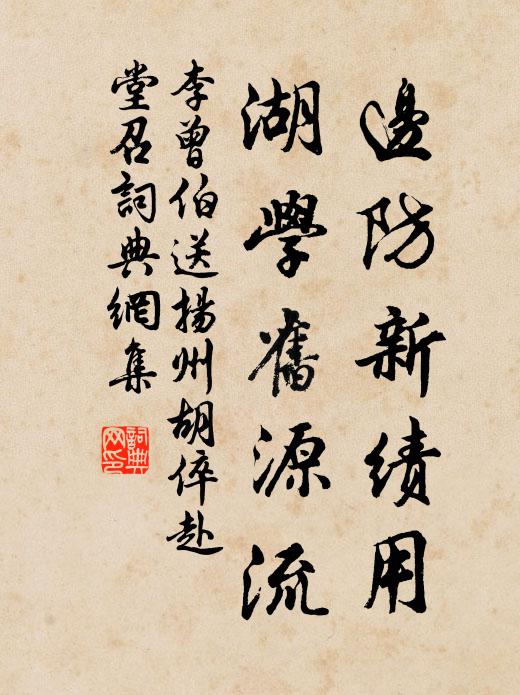 邊防新績用
湖學舊源流
李曾伯送揚州胡倅赴
堂召詞典網集
詞典
网印